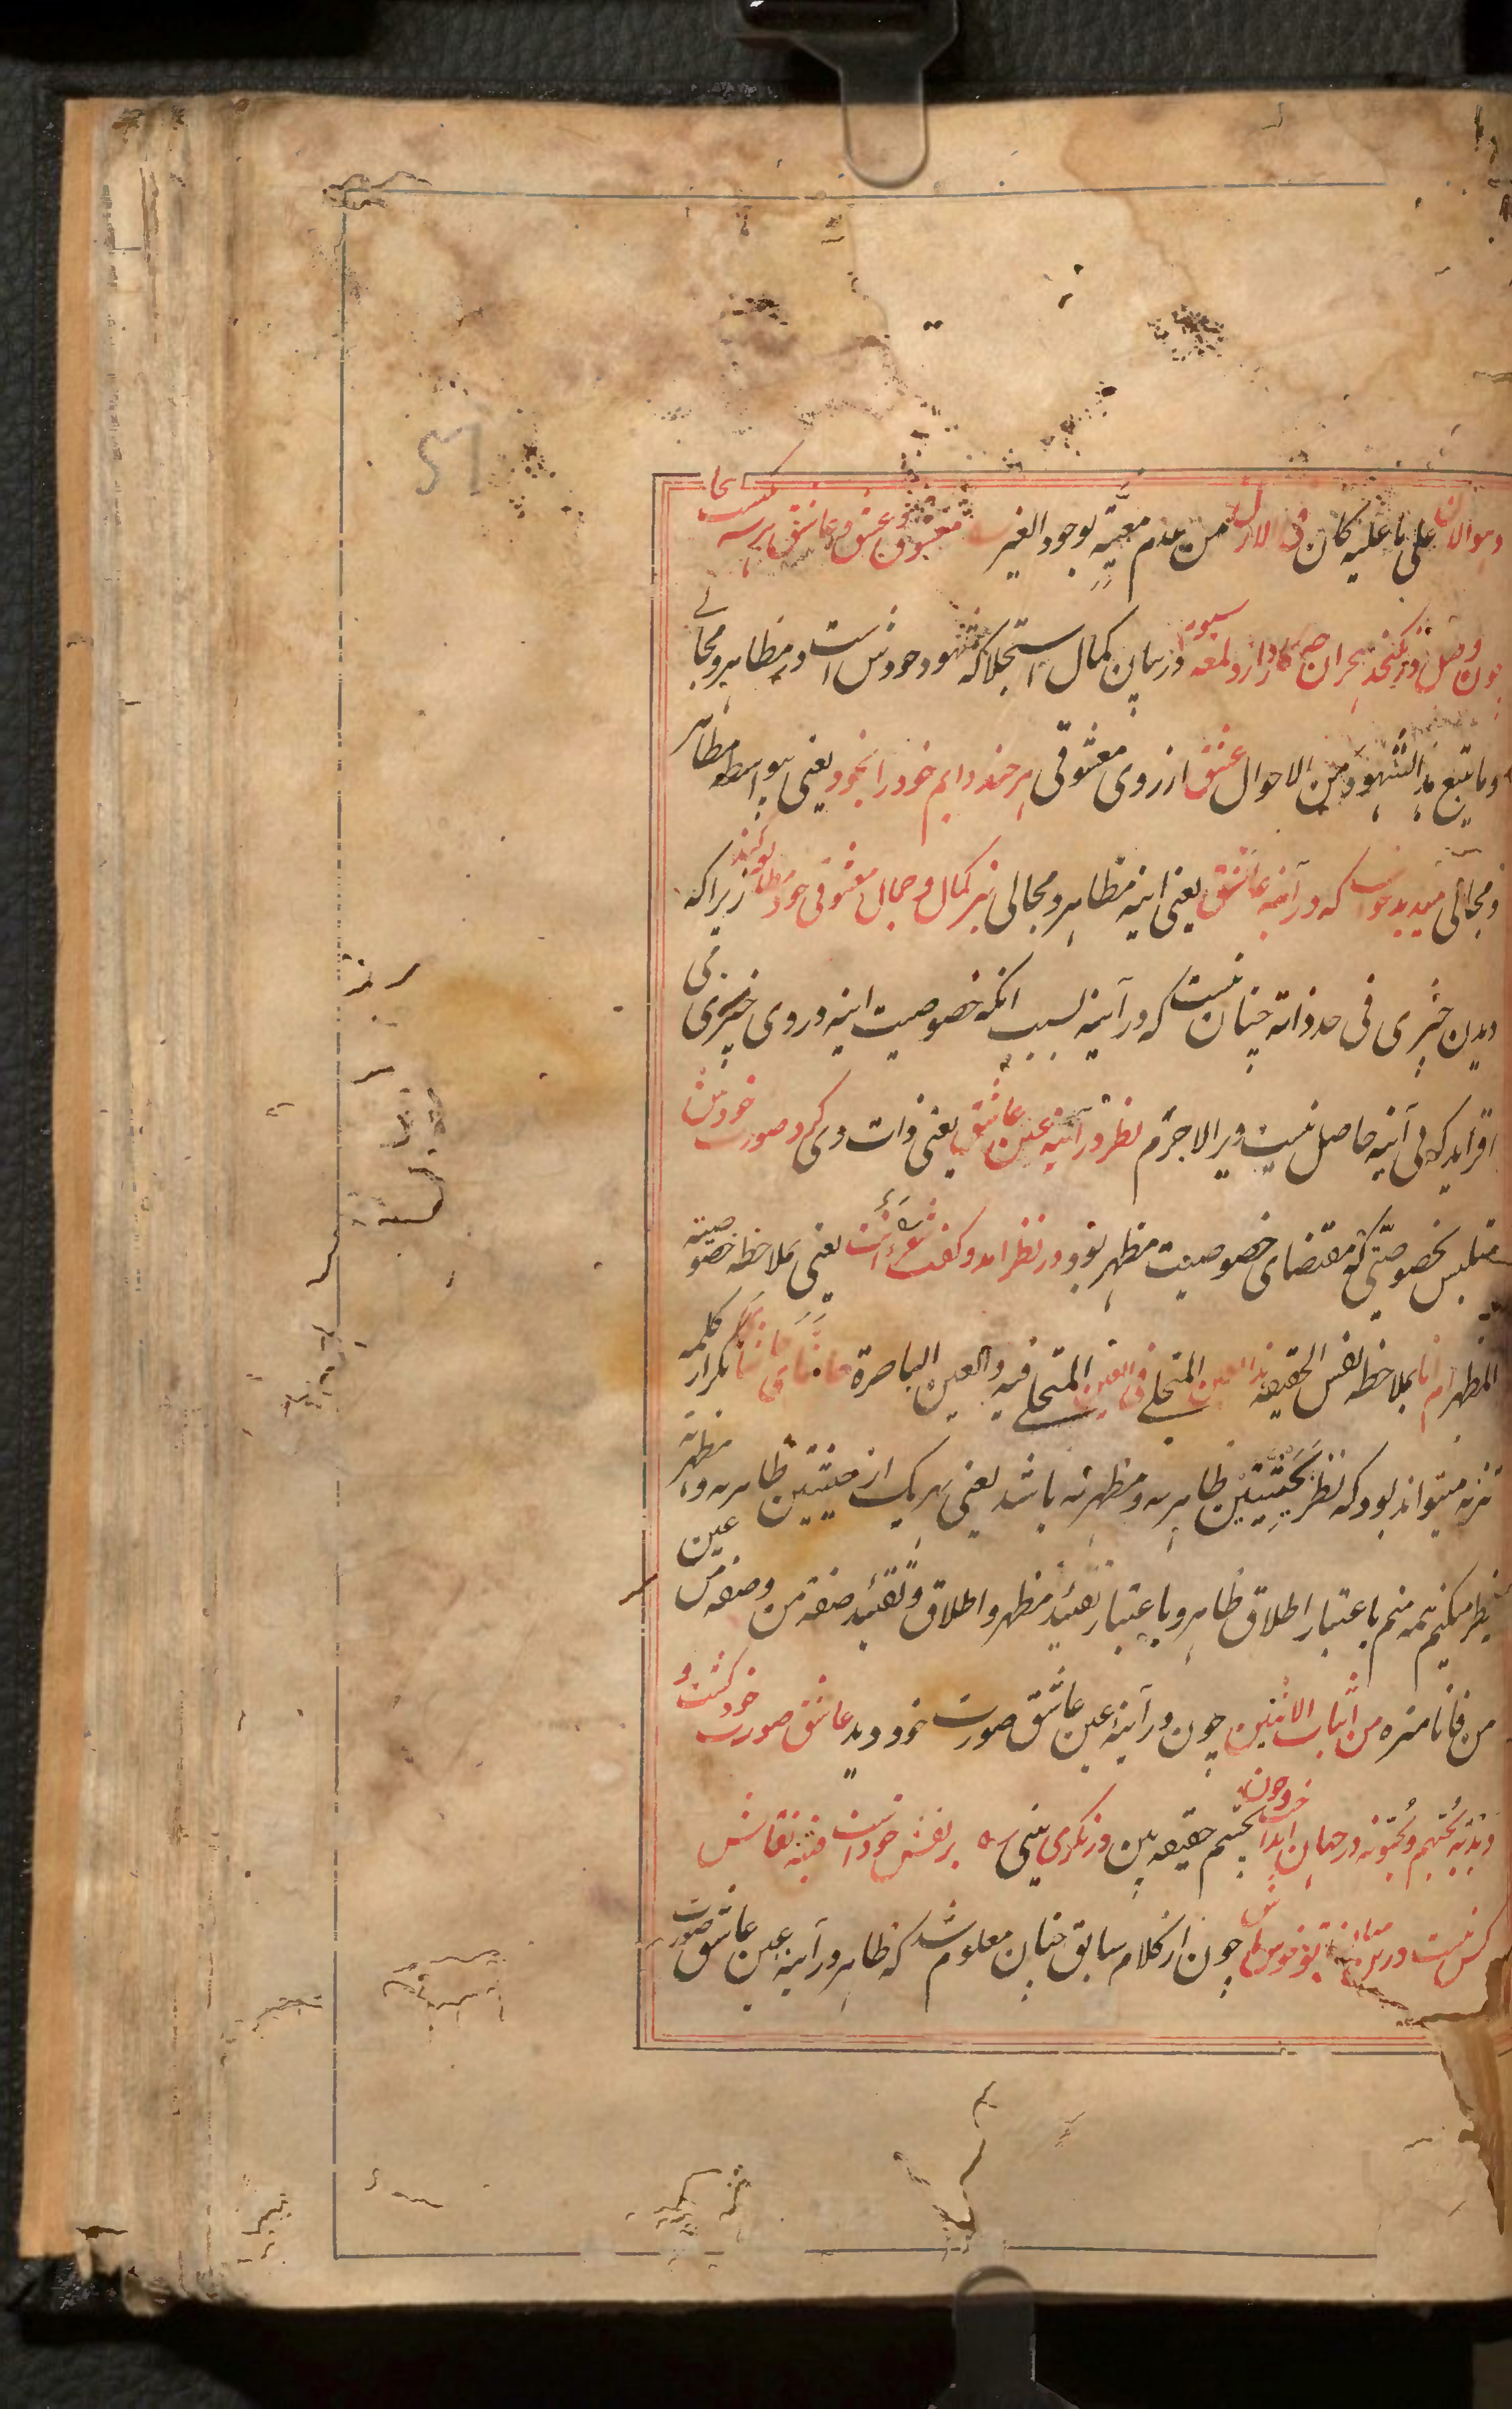 وهو الان علی ما علیه کان فی الازل من عدم معیّة بوجود الغیر معشوق و عشق و عاشق هر سه یکیست اینجا
چون وصل در نکنجد هجران چه کار دارد لمعه سیوم در بیان کمال استجلا که شهود خودش است در مظاهر و مجالی
و ما یتبع هذا الشهود من الاحوال عشق از روی معشوقی هر چند دایم خود را بخود یعنی بواسطه مظاهر
و مجالی میدید خواست که در آینه عاشق یعنی اینه مظاهر و مجالی نیز کمال و جمال معشوقی خود مطالعه کند زیرا که
دیدن چیزی فی حد ذاته چنان نیست که در آینه بسبب انکه خصوصیت اینه در وی چیزی می
افزاید که بی آینه حاصل نیست ویرا لاجرم نظر در آینه عین عاشق یعنی ذات وی کرد صورت خودش
متلبس بخصوصیتی که مقتضای خصوصیت مظهر بود در نظر امد و کفت شعر ءانت یعنی بملاحظه خصوصیة
المظهر ام انا بملاحظه نفس الحقیقه هذا العین المتجلی فی العین المتجلی فیه و العین الباصرة حاشای حاشا تکرار کلمه
تنزیه میتواند بود که نظر بحیثیتین ظاهریه و مظهریه باشد یعنی بهر یک از حیثیتین ظاهریه و مظهریه
نظر میکنم همه منم باعتبار اطلاق ظاهر و باعتبار تقئید مظهر و اطلاق و تقئید صفة من و صفه من عین
من فانا منزه من اثبات الاثنین چون در آینهٔ عین عاشق صورت خود دید عاشق صورت خود کشت و
دبدبه یحبهم و یحبونه در جهان انداخت و چون بچشم حقیقه بین در نکری بینی که بر نقش خودست فتنه نقاش
کس نیست درین میانه تو خوش باش چون از کلام سابق چنان معلوم شد که ظاهر در آینه عین عاشق صورت